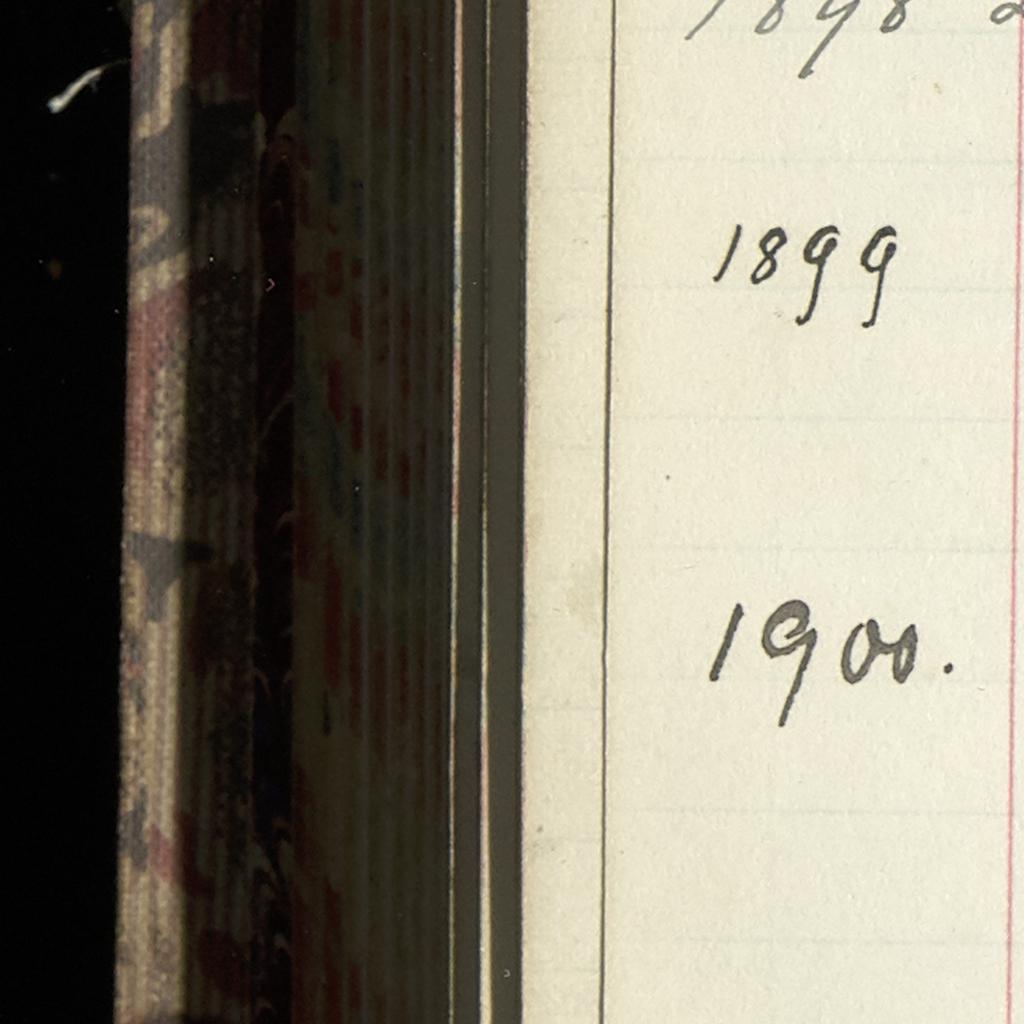 1898
1899
1900.